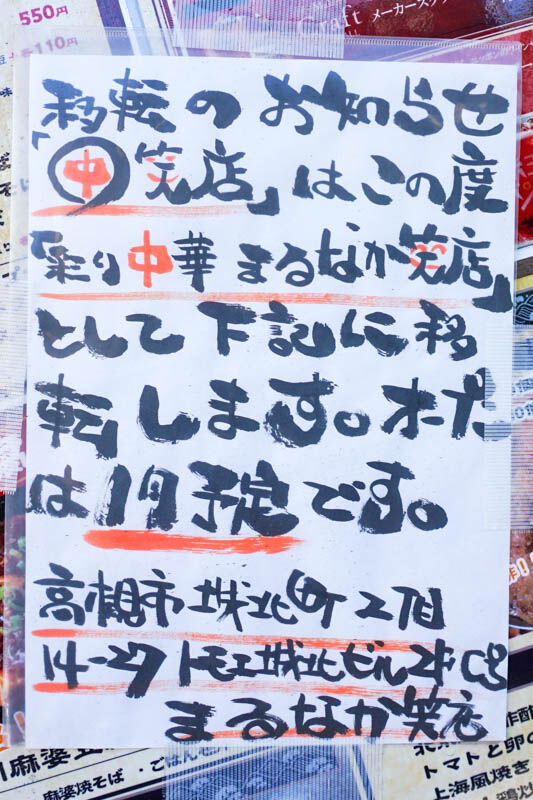 550円
110円
Craft メーカーズ
移転のお知らせ
「㊥笑店」はこの度
「彩り中華 まるなか笑店」
として下記に移
転します。オープン
は11月予定です。
高槻市城北町2丁目
14-27 トモエ城北ビル2F
まるなか笑店
麻婆豆
麻婆焼そば ・ごはん
トマトと卵の
上海風焼き